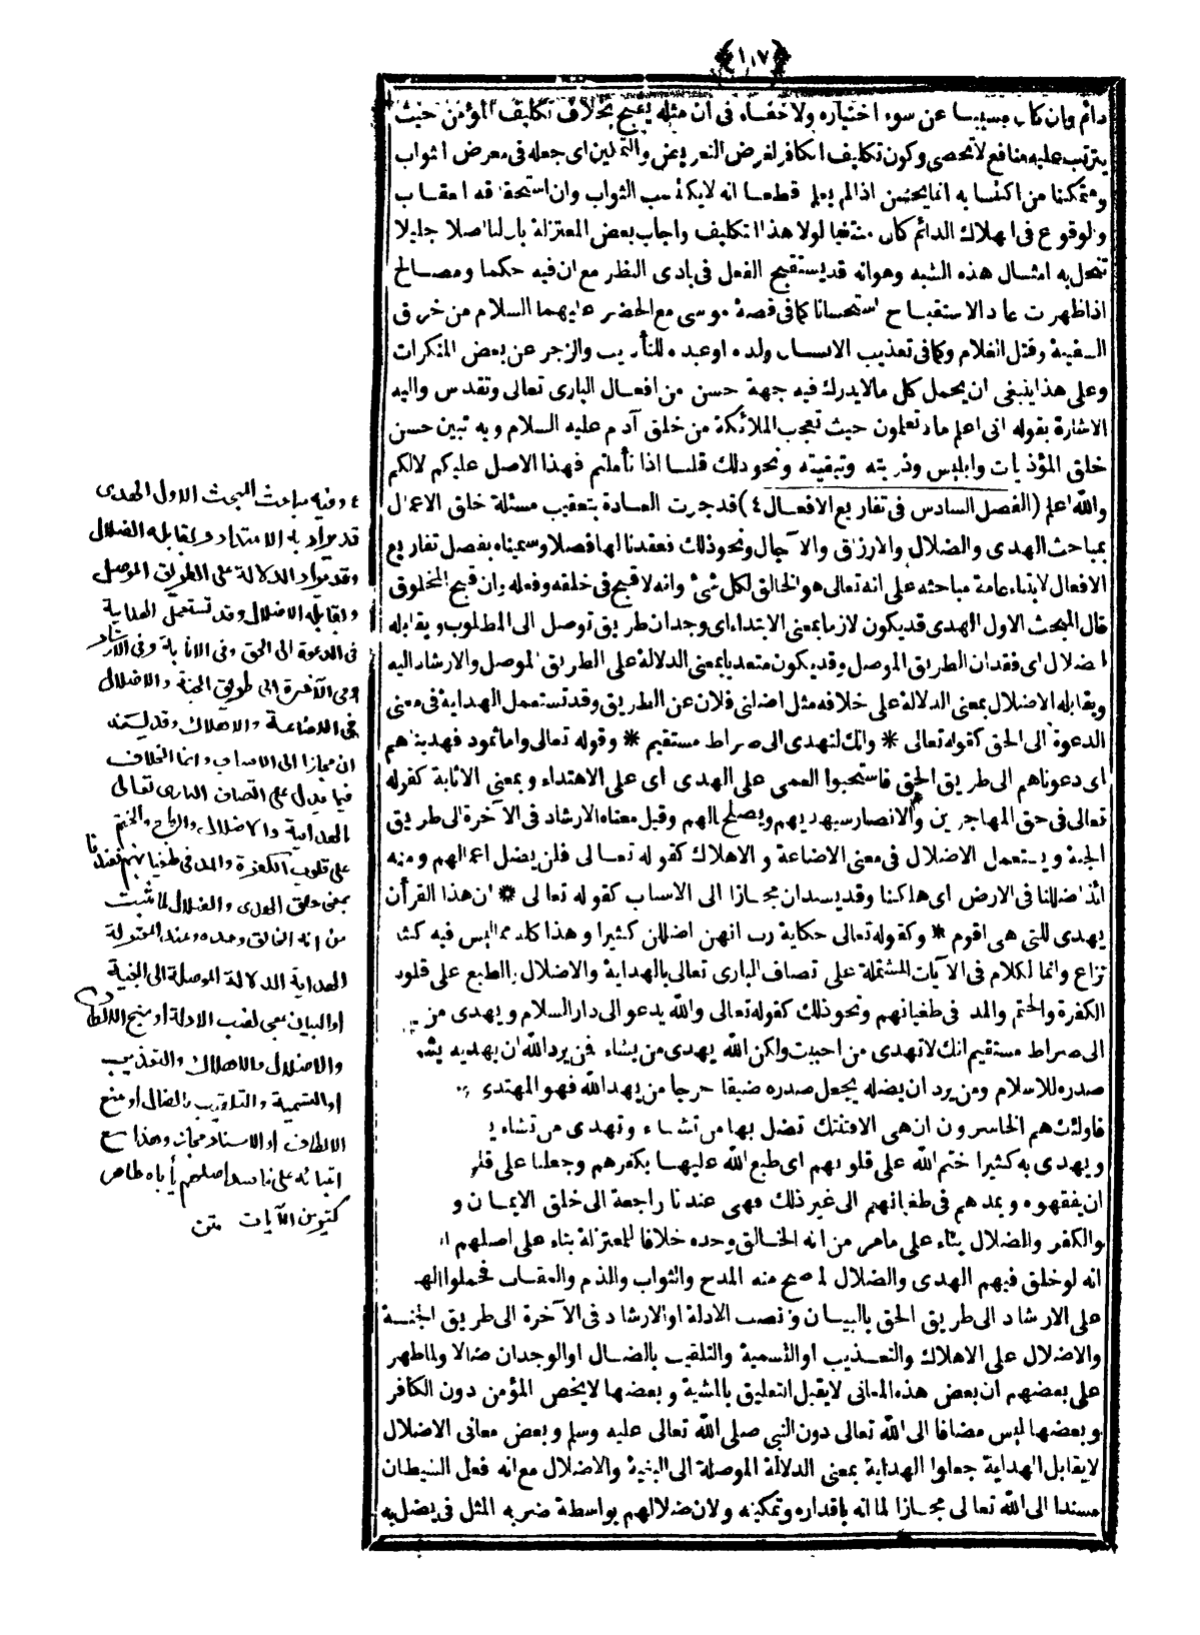 ﴿١٠٧﴾
دائم وان كان مسببا عن سوء اختياره ولا خفاء فى ان مثله يقبح بخلاف تكليف المؤمن حيث
يترتب عليه منافع لا تحصى وكون تكليف الكافر لغرض التعريض والتمكين اى جعله فى معرض الثواب
ومتمكنا من اكتسابه انما يحسن اذا لم يعلم قطعا انه لا يكتسب الثواب وان استحقاقه العقاب
والوقوع فى الهلاك الدائم كان منتفيا لولا هذا التكليف واجاب بعض المعتزلة بان لنا اصلا جليلا
تنحل به امثال هذه الشبه وهو انه قد يستقبح الفعل فى بادى النظر مع ان فيه حكما ومصالح
اذا ظهرت عاد الاستقباح استحسانا كما فى قصة موسى مع الخضر عليهما السلام من خرق
السفينة وقتل الغلام وكما فى تعذيب الانسان ولده او عبده للتأديب والزجر عن بعض المنكرات
وعلى هذا ينبغى ان يحمل كل مالا يدرك فيه جهة حسن من افعال البارى تعالى وتقدس واليه
الاشارة بقوله انى اعلم مالا تعلمون حيث تعجب الملائكة من خلق آدم عليه السلام وبه تبين حسن
خلق المؤذيات وابليس وذريته وتبقيته ونحو ذلك قلنا اذا تأملتم فهذا الاصل عليكم لا لكم
والله اعلم (الفصل السادس فى تفاريع الافعال ٤) قد جرت العادة بتعقيب مسئلة خلق الاعمال
بمباحث الهدى والضلال والارزاق والآجال ونحو ذلك فعقدنا لها فصلا وسميناه بفصل تفاريع
الافعال لابتناء عامة مباحثه على انه تعالى هو الخالق لكل شئ وانه لا قبيح فى خلقه وفعله وان قبح المخلوق
قال المبحث الاول الهدى قد يكون لازما بمعنى الاهتداء اى وجدان طريق توصل الى المطلوب ويقابله
الضلال اى فقدان الطريق الموصل وقد يكون متعديا بمعنى الدلالة على الطريق الموصل والارشاد اليه
ويقابله الاضلال بمعنى الدلالة على خلافه مثل اضلنى فلان عن الطريق وقد تستعمل الهداية فى معنى
الدعوة الى الحق كقوله تعالى * وانك لتهدى الى صراط مستقيم * وقوله تعالى واما ثمود فهديناهم
اى دعوناهم الى طريق الحق فاستحبوا العمى على الهدى اى على الاهتداء وبمعنى الاثابة كقوله
تعالى فى حق المهاجرين والانصار سيهديهم ويصلح بالهم وقيل معناه الارشاد فى الآخرة الى طريق
الجنة ويستعمل الاضلال فى معنى الاضاعة والاهلاك كقوله تعالى فلن يضل اعمالهم ومنه
ائذا ضللنا فى الارض اى هلكنا وقد يسندان مجازا الى الاسباب كقوله تعالى * ان هذا القرأن
يهدى للتى هى اقوم * وكقوله تعالى حكاية رب انهن اضللن كثيرا وهذا كله مما ليس فيه كثير
نزاع وانما الكلام فى الآيات المشتملة على اتصاف البارى تعالى بالهداية والاضلال والطبع على قلوب
الكفرة والختم والمد فى طغيانهم ونحو ذلك كقوله تعالى والله يدعو الى دار السلام ويهدى من
الى صراط مستقيم انك لا تهدى من احببت ولكن الله يهدى من يشاء فمن يرد الله ان يهديه يشرح
صدره للاسلام ومن يرد ان يضله يجعل صدره ضيقا حرجا من يهد الله فهو المهتدى
فاولئك هم الخاسرون ان هى الا فتنتك تضل بها من تشاء وتهدى من تشاء
ويهدى به كثيرا ختم الله على قلوبهم اى طبع الله عليها بكفرهم وجعلنا على قلوبهم
ان يفقهوه ويمدهم فى طغيانهم الى غير ذلك فهى عندنا راجعة الى خلق الايمان و
والكفر والضلال بناء على مامر من انه الخالق وحده خلافا للمعتزلة بناء على اصلهم
انه لو خلق فيهم الهدى والضلال لما صح منه المدح والثواب والذم والعقاب فحملوا الهداية
على الارشاد الى طريق الحق بالبيان ونصب الادلة او الارشاد فى الآخرة الى طريق الجنة
والاضلال على الاهلاك والتعذيب او التسمية والتلقيب بالضال او الوجدان ضالا ولما ظهر
على بعضهم ان بعض هذه المعانى لا يقبل التعليق بالمشية وبعضها لا يخص المؤمن دون الكافر
وبعضها ليس مضافا الى الله تعالى دون النبى صلى الله تعالى عليه وسلم وبعض معانى الاضلال
لا يقابل الهداية جعلوا الهداية بمعنى الدلالة الموصلة الى البغية والاضلال مع انه فعل الشيطان
مسندا الى الله تعالى مجازا لما انه باقداره وتمكينه ولان ضلالهم بواسطة ضربه المثل فى يضل به
٤ وفيه مباحث المبحث الاول الهدى
قد يراد به الاهتداء ويقابله الضلال
وقد يراد الدلالة على الطريق الموصل
ويقابله الاضلال وقد تستعمل الهداية
فى الدعوة الى الحق وفى الاثابة وفى الارشاد
فى الآخرة الى طريق الجنة والاضلال
فى الاضاعة والاهلاك وقد يسند
ان مجازا الى الاسباب وانما الخلاف
فيما يدل على اتصاف البارى تعالى
بالهداية والاضلال والطبع والختم
على قلوب الكفرة والمد فى طغيانهم فعندنا
بمعنى خلق الهدى والضلال لما ثبت
من انه الخالق وحده وعند المعتزلة
الهداية الدلالة الموصلة الى البغية
او البيان بمعنى نصب الادلة او منح الالطاف
والاضلال الاهلاك والتعذيب
او التسمية والتلقيب بالضال او منع
الالطاف او الاسناد مجاز وهذا مع
ابتنائه على فاسد اصلهم يأباه ظاهر
كثير من الآيات متن